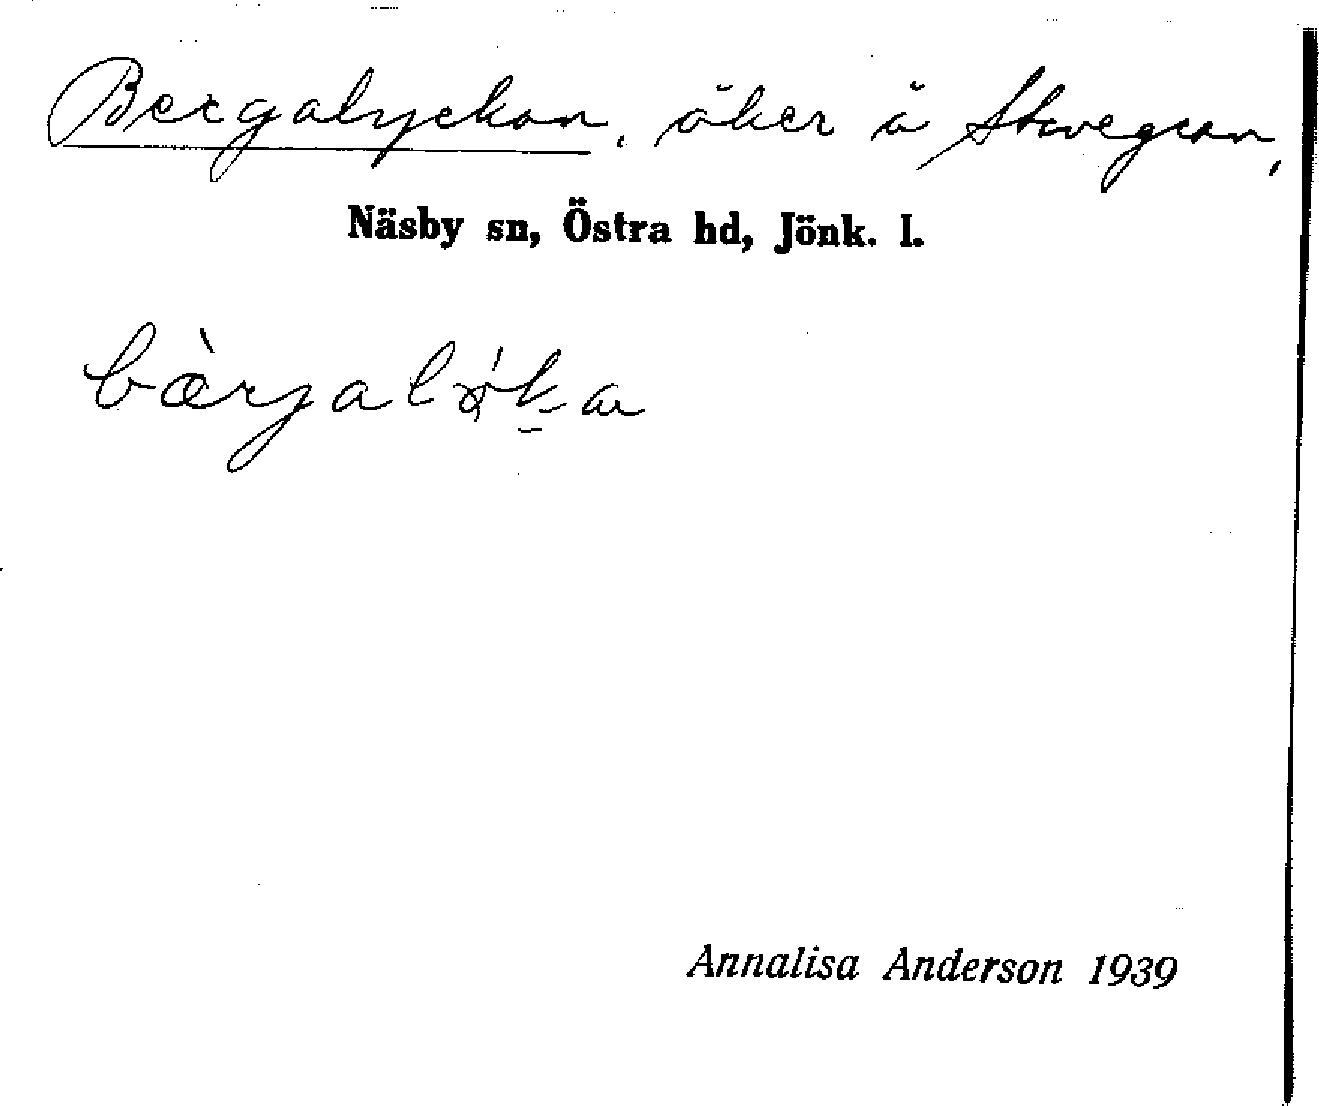 Bergalyckan, åker å Stuvegren,
Näsby sn, Östra hd, Jönk. l.
bæ̀rjalø̍ka
Annalisa Anderson 1939